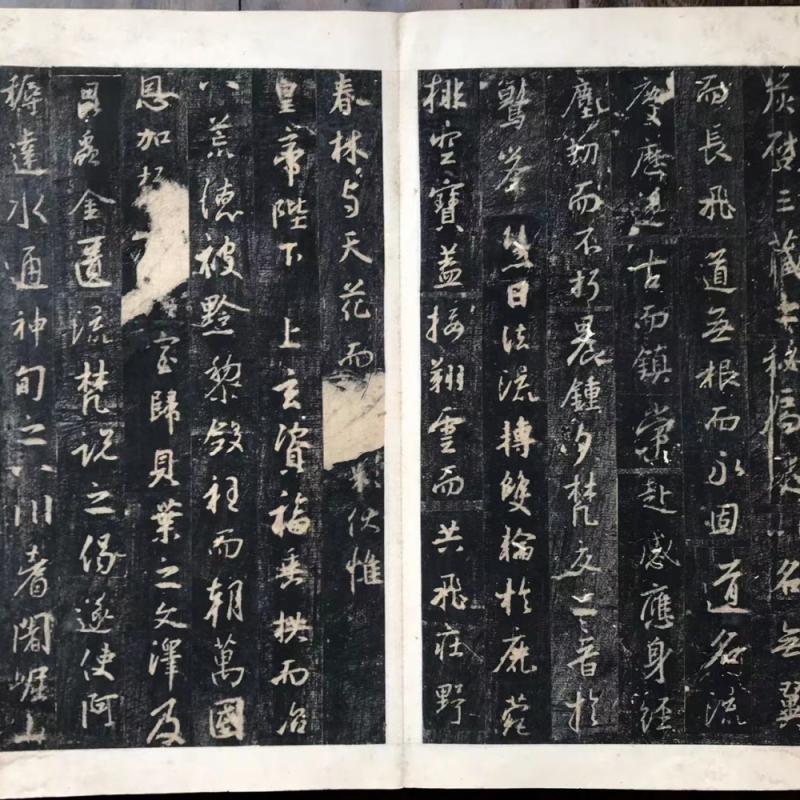 炭啓三藏之秘扃是以名無翼
而長飛道無根而永固道名流
慶歷遂古而鎮常赴感應身經
塵劫而不朽晨鍾夕梵交二音於
鷲峯慧日法流轉雙輪於鹿菀
排空寶蓋接翔雲而共飛莊野
春林与天花而彩伏惟
皇帝陛下上玄資福垂拱而治
八荒德被黔黎斂衽而朝萬國
恩加朽室歸貝葉之文澤及
昆蟲金匱流梵說之偈遂使阿
耨達水通神甸之八川耆闍崛山